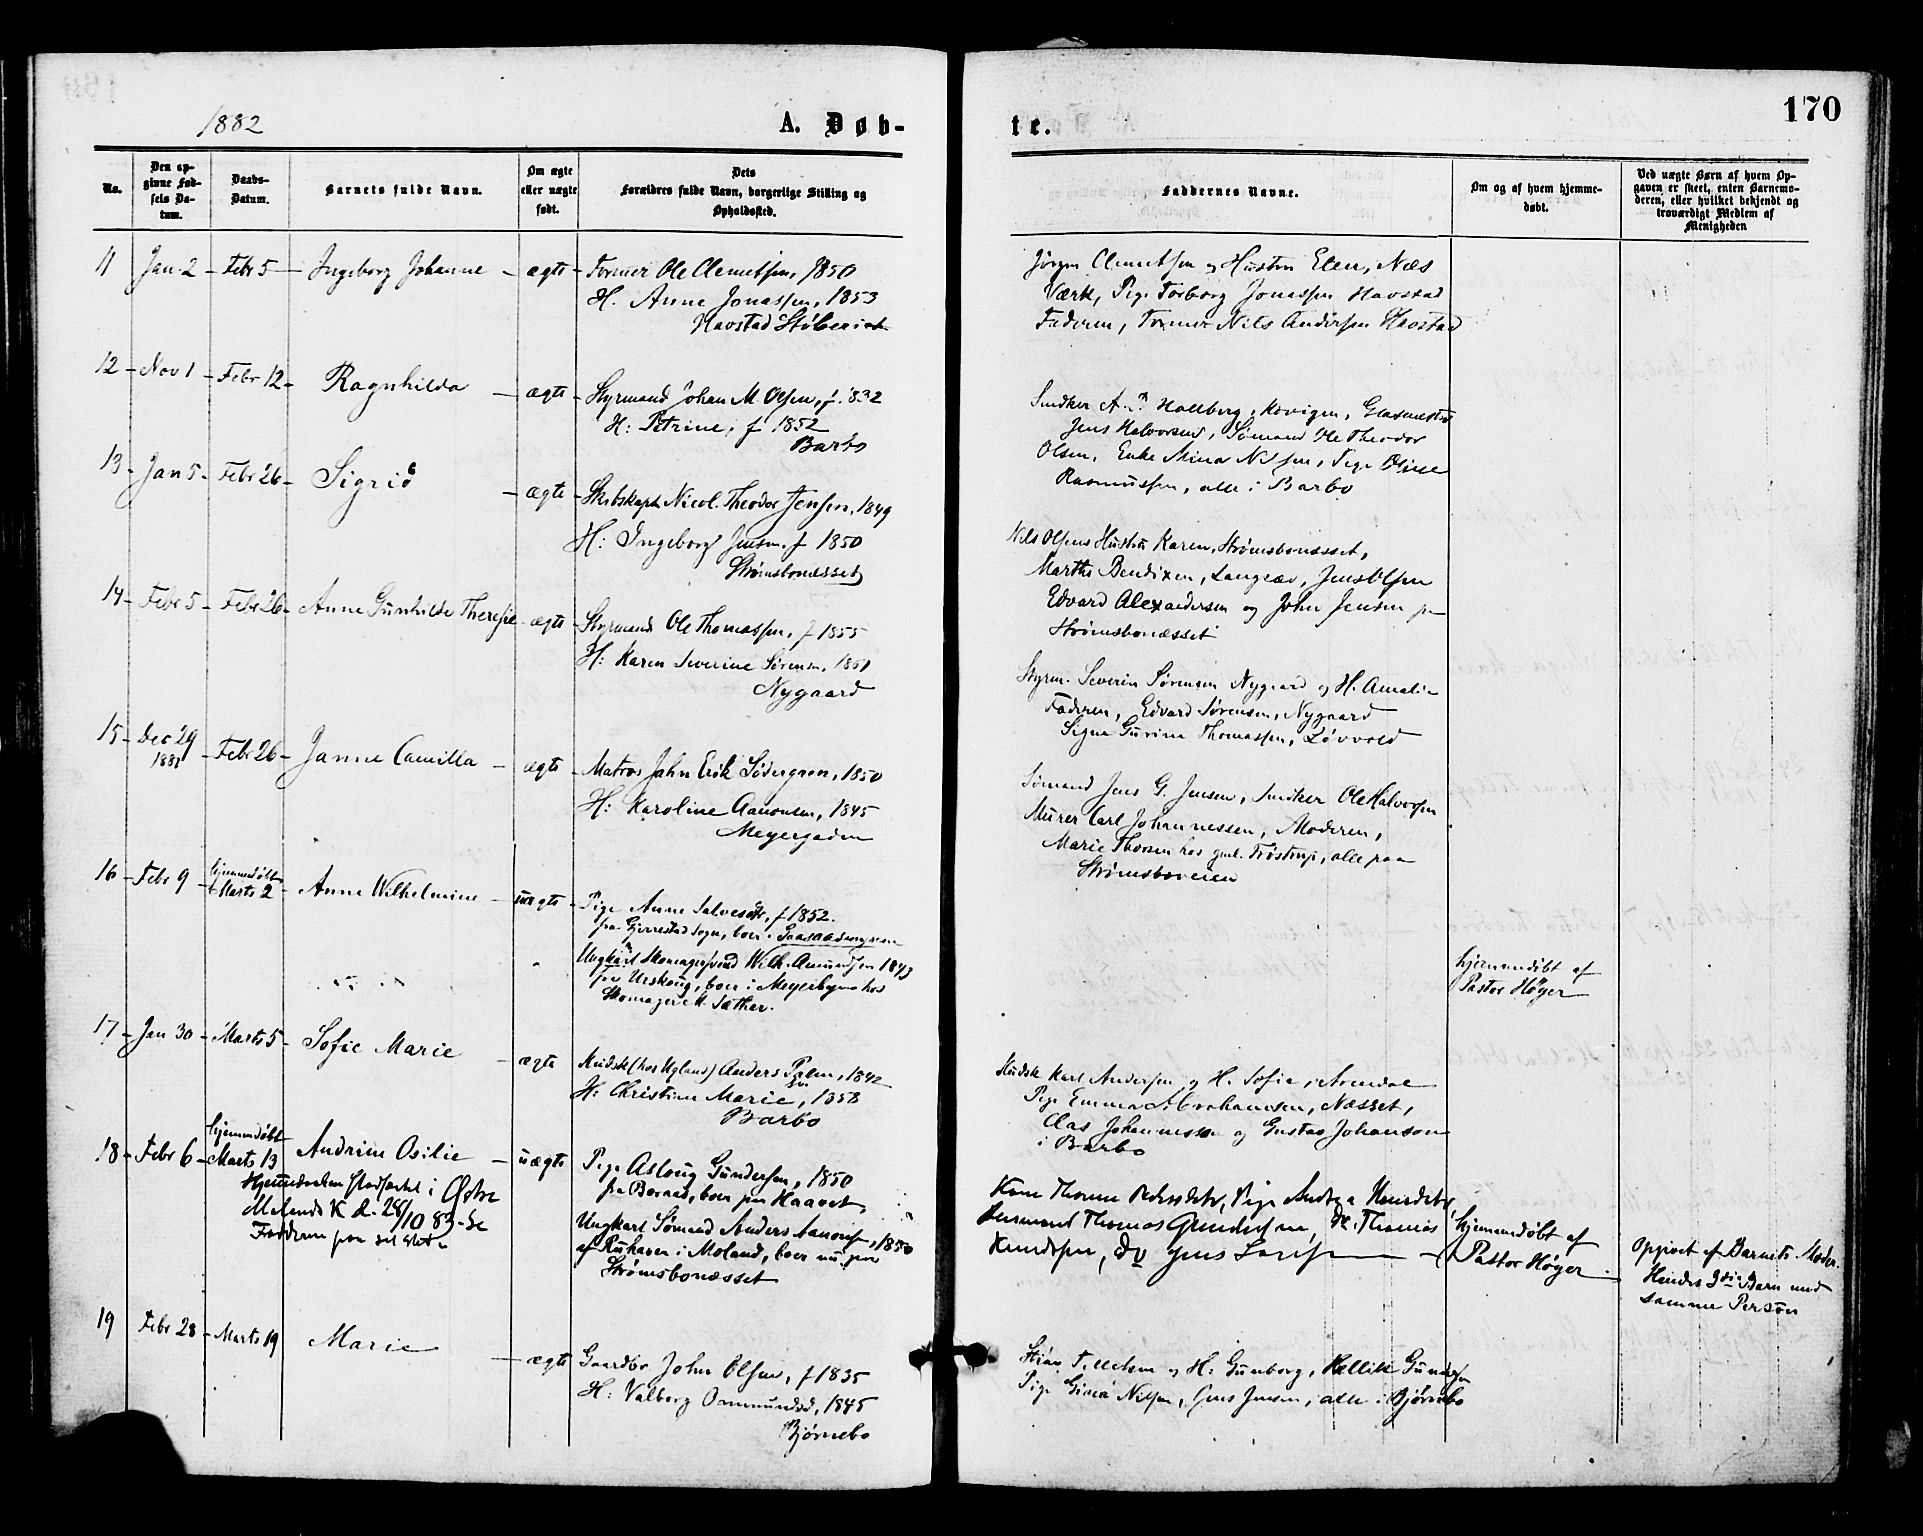 1882
A. Døb-
te.
170
No.
Den op-
givne Fød-
sels Da-
tum.
Daabs-
Datum.
Barnets fulde Navn.
Om ægte
eller uægte
født.
Dets
Forældres fulde Navn, borgerlige Stilling og
Opholdssted.
Faddernes Navne.
Om og af hvem hjemme-
døbt.
Ved uægte Børn af hvem Op-
gaven er skeet, enten Barnemo-
deren, eller hvilket bekjendt og
troværdigt Medlem af
Menigheden
11 Jan. 2 Febr 5 Ingeborg Johanne ægte Former Ole Clemetsen, 1850
H. Anne Jonassen, 1853
Havstad Støberi
Jørgen Clemetsen og Hustru Elen, Næs
Værk, Pige Torborg Jonassen Havstad
Faderen, Former Nils Andersen Havstad
12 Nov 1 Febr 12 Ragnhilda ægte Styrmand Johan M. Olsen, f. 1832
H: Petrine, f 1852
Barbo
Snedker A. P. Hallberg, Glasmester
Jens Halvorsen, Sømand Ole Theodor
Olsen, Enke Mina Nilsen, Pige Oline
Rasmussen, alle i Barbo
13 Jan 5 Febr 26 Sigrid ægte Skibskapt Nicol. Theodor Jensen, 1849
H: Ingeborg Jensen. f 1850
Strømsbonæsset
Nils Olsens Hustru Karen, Strømsbonæsset,
Marthe Bendixen, Langsæv, Jens Olsen
Edvard Alexandersen og John Jensen paa
Strømsbonæsset
14 Febr 5 Febr 26 Anne Gunhilde Theresie ægte Styrmand Ole Thomassen, f 1855
H: Karen Severine Sørensen, 1851
Nygaard
Styrm. Severin Sørensen Nygaard og H. Amalie
Faderen, Edvard Sørensen, Nygaard
Signe Gurine Thomassen, Løvvold
15 Dec 29
1881 Febr 26 Janne Camilla ægte Matros John Erik Södergren, 1850
H: Karoline Aanonsen, 1845
Meyergaden
Sømand Jens G. Jensen, Snedker Ole Halvorsen
Murer Carl Johannessen, Moderen,
Marie Thorsen hos gml. Trøstrup, alle paa
Strømsboveien
16 Febr 9 hjemmedøbt
Marts 2 Anne Wilhelmine uægte Pige Anne Salvesdtr, f 1852.
fra Gjerrestad Sogn, boer
Ungkarl Skomagersvend Wilh. Amundsen 1843
fra Urskoug, boer i Meyerbyen hos
Skomager M. Sæther.
hjemmedøbt af
Pastor Høyer
17 Jan 30 Marts 5 Sofie Marie ægte Kudsk (hos Ugland) Anders Palm, 1842
H: Christine Marie, 1858
Barbo
Kudsk Karl Andersen og H. Sofie, Arendal
Pige Emma Abrahamsen, Næsset,
Clas Johannessen og Gustav Johanson
i Barbo
18 Febr 6 hjemmedøbt
Marts 13 Andrine Osilie uægte Pige Asloug Gundersen, 1850
fra Boraas, boer paa Haavet,
Ungkarl Sømand Anders Aanonsen, 1850
af Ruhaven i Moland, boer nu paa
Strømsbonæsset
Hjemmedaaben stadfæstet i Østre
Molands K d. 28/10 83 - Se
Fadderne paa det Sted
Kone Thomine Pedersdatter, Pige Andrea Knudsdatter,
Thomas Gundersen, do. Thomas
Knudsen, do Jens Larsen
hjemmedøbt af
Pastor Høyer
Opgivet af Barnets Moder.
Hendes 3die Barn med
samme Person
19 Febr 28 Marts 19 Marie ægte Gaardbr John Olsen, f 1835
H: Valborg Ommundsd, 1845
Bjørnebo
Tellefsen og H. Gunborg, Kellik Gundersen
Pige Gina Nilsen, Jens Jensen, alle i Bjørnebo